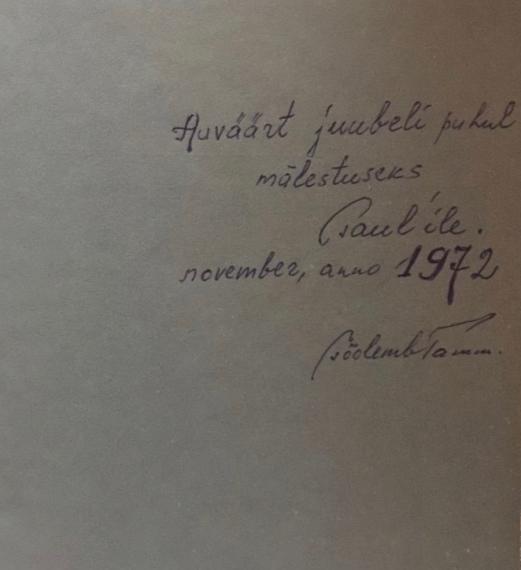 Auväärt juubeli puhul
mälestuseks
Paul'ile.
november, anno 1972